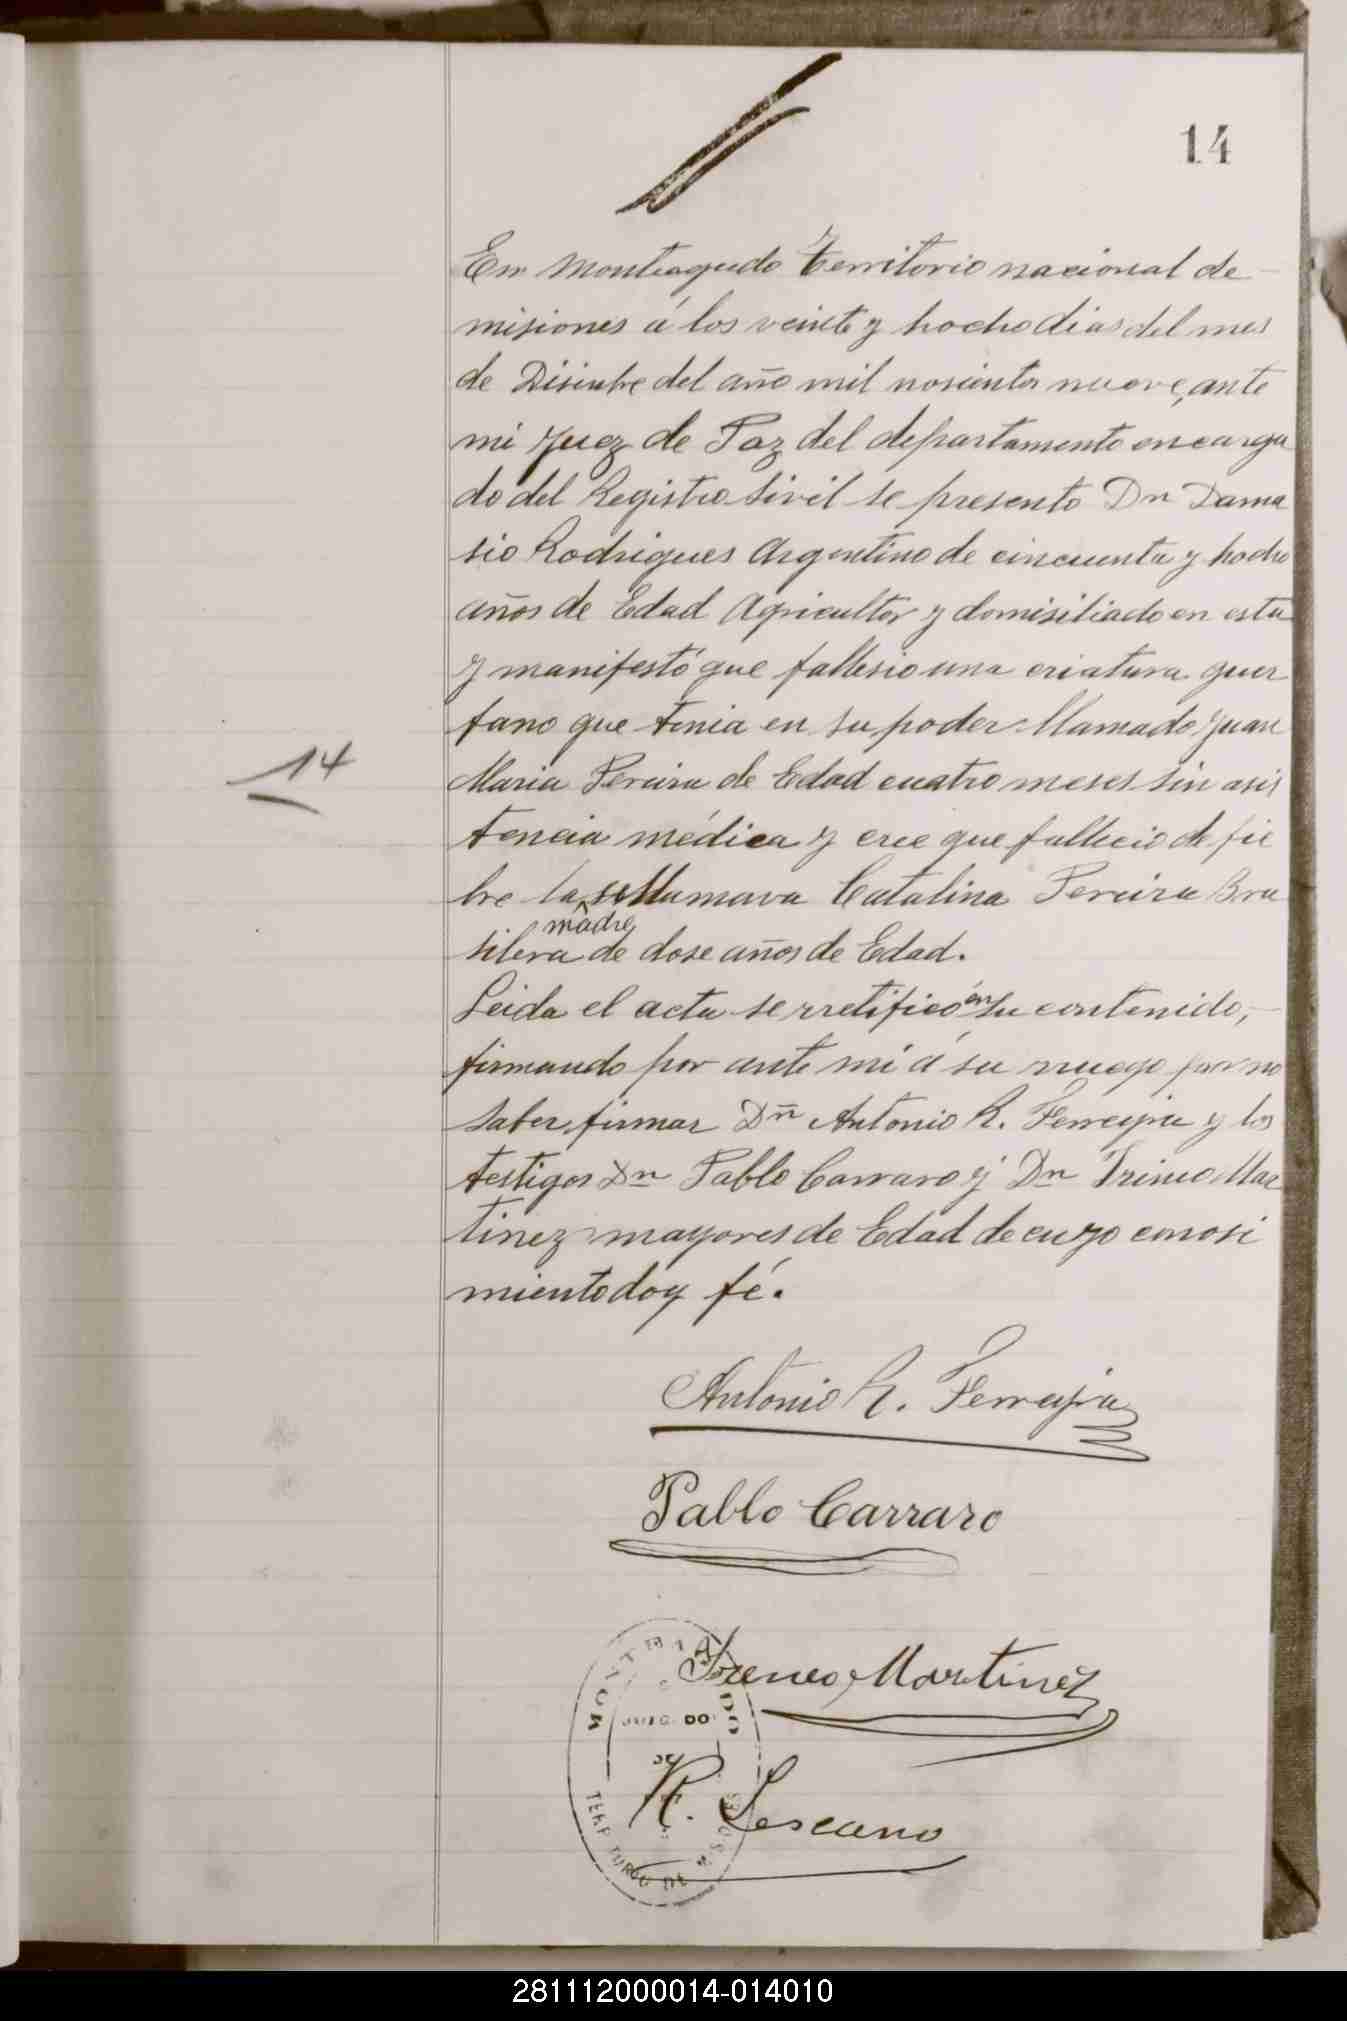 14
En Monteagudo Territorio nacional de
misiones á los veinte y hocho dias del mes
de Disiembre del año mil nosientos nueve, ante
mi Juez de Paz del departamento encarga
do del Registro Sivil se presento Dn Dama
sio Rodrigues Argentino de cincuenta y hocho
años de Edad Agricultor y domisiliado en esta
y manifestó que fallesio una criatura guer
fano que tenia en su poder llamado Juan
14
Maria Pereira de Edad cuatro meses sin asis
tencia médica y cree que fallecio de fie
bre la se llamava Catalina Pereira Bra
madre
silera de dose años de Edad.
Leida el acta se rretificó en su contenido,
firmando por ante mi á su ruego por no
saber firmar Dn Antonio R. Ferreyra y los
testigos Dn Pablo Carraro y Dn Irineo Mar
tinez mayores de Edad de cuyo conosi
miento doy fé.
Antonio R. Ferreyra
Pablo Carraro
Ireneo Martinez
JUZG DO
DE
R. Lescano
281112000014-014010